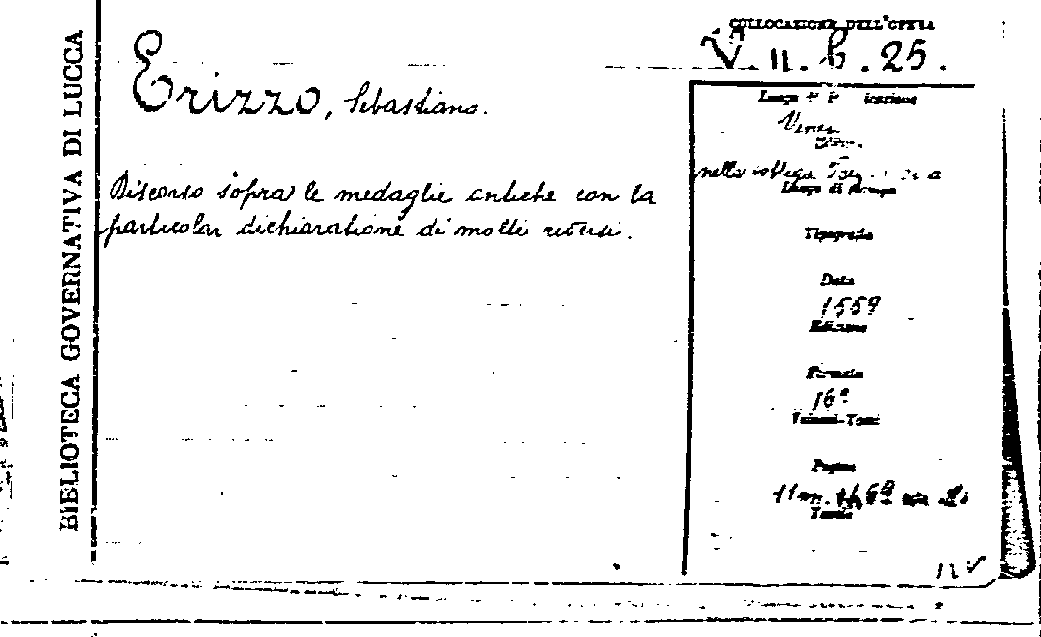 BIBLIOTECA GOVERNATIVA DI LUCCA
Erizzo, Sebastiano.
Discorso sopra le medaglie antiche con la
particolar dichiaratione di molti riversi.
COLLOCAZIONE DELL'OPERA
V. 11. b. 25.
Luogo di
nella bottega
Luogo di stampa
Tipografia
Data
1559
Edizione
Formato
16°
Volumi-Tomi
Pagine
Tavole